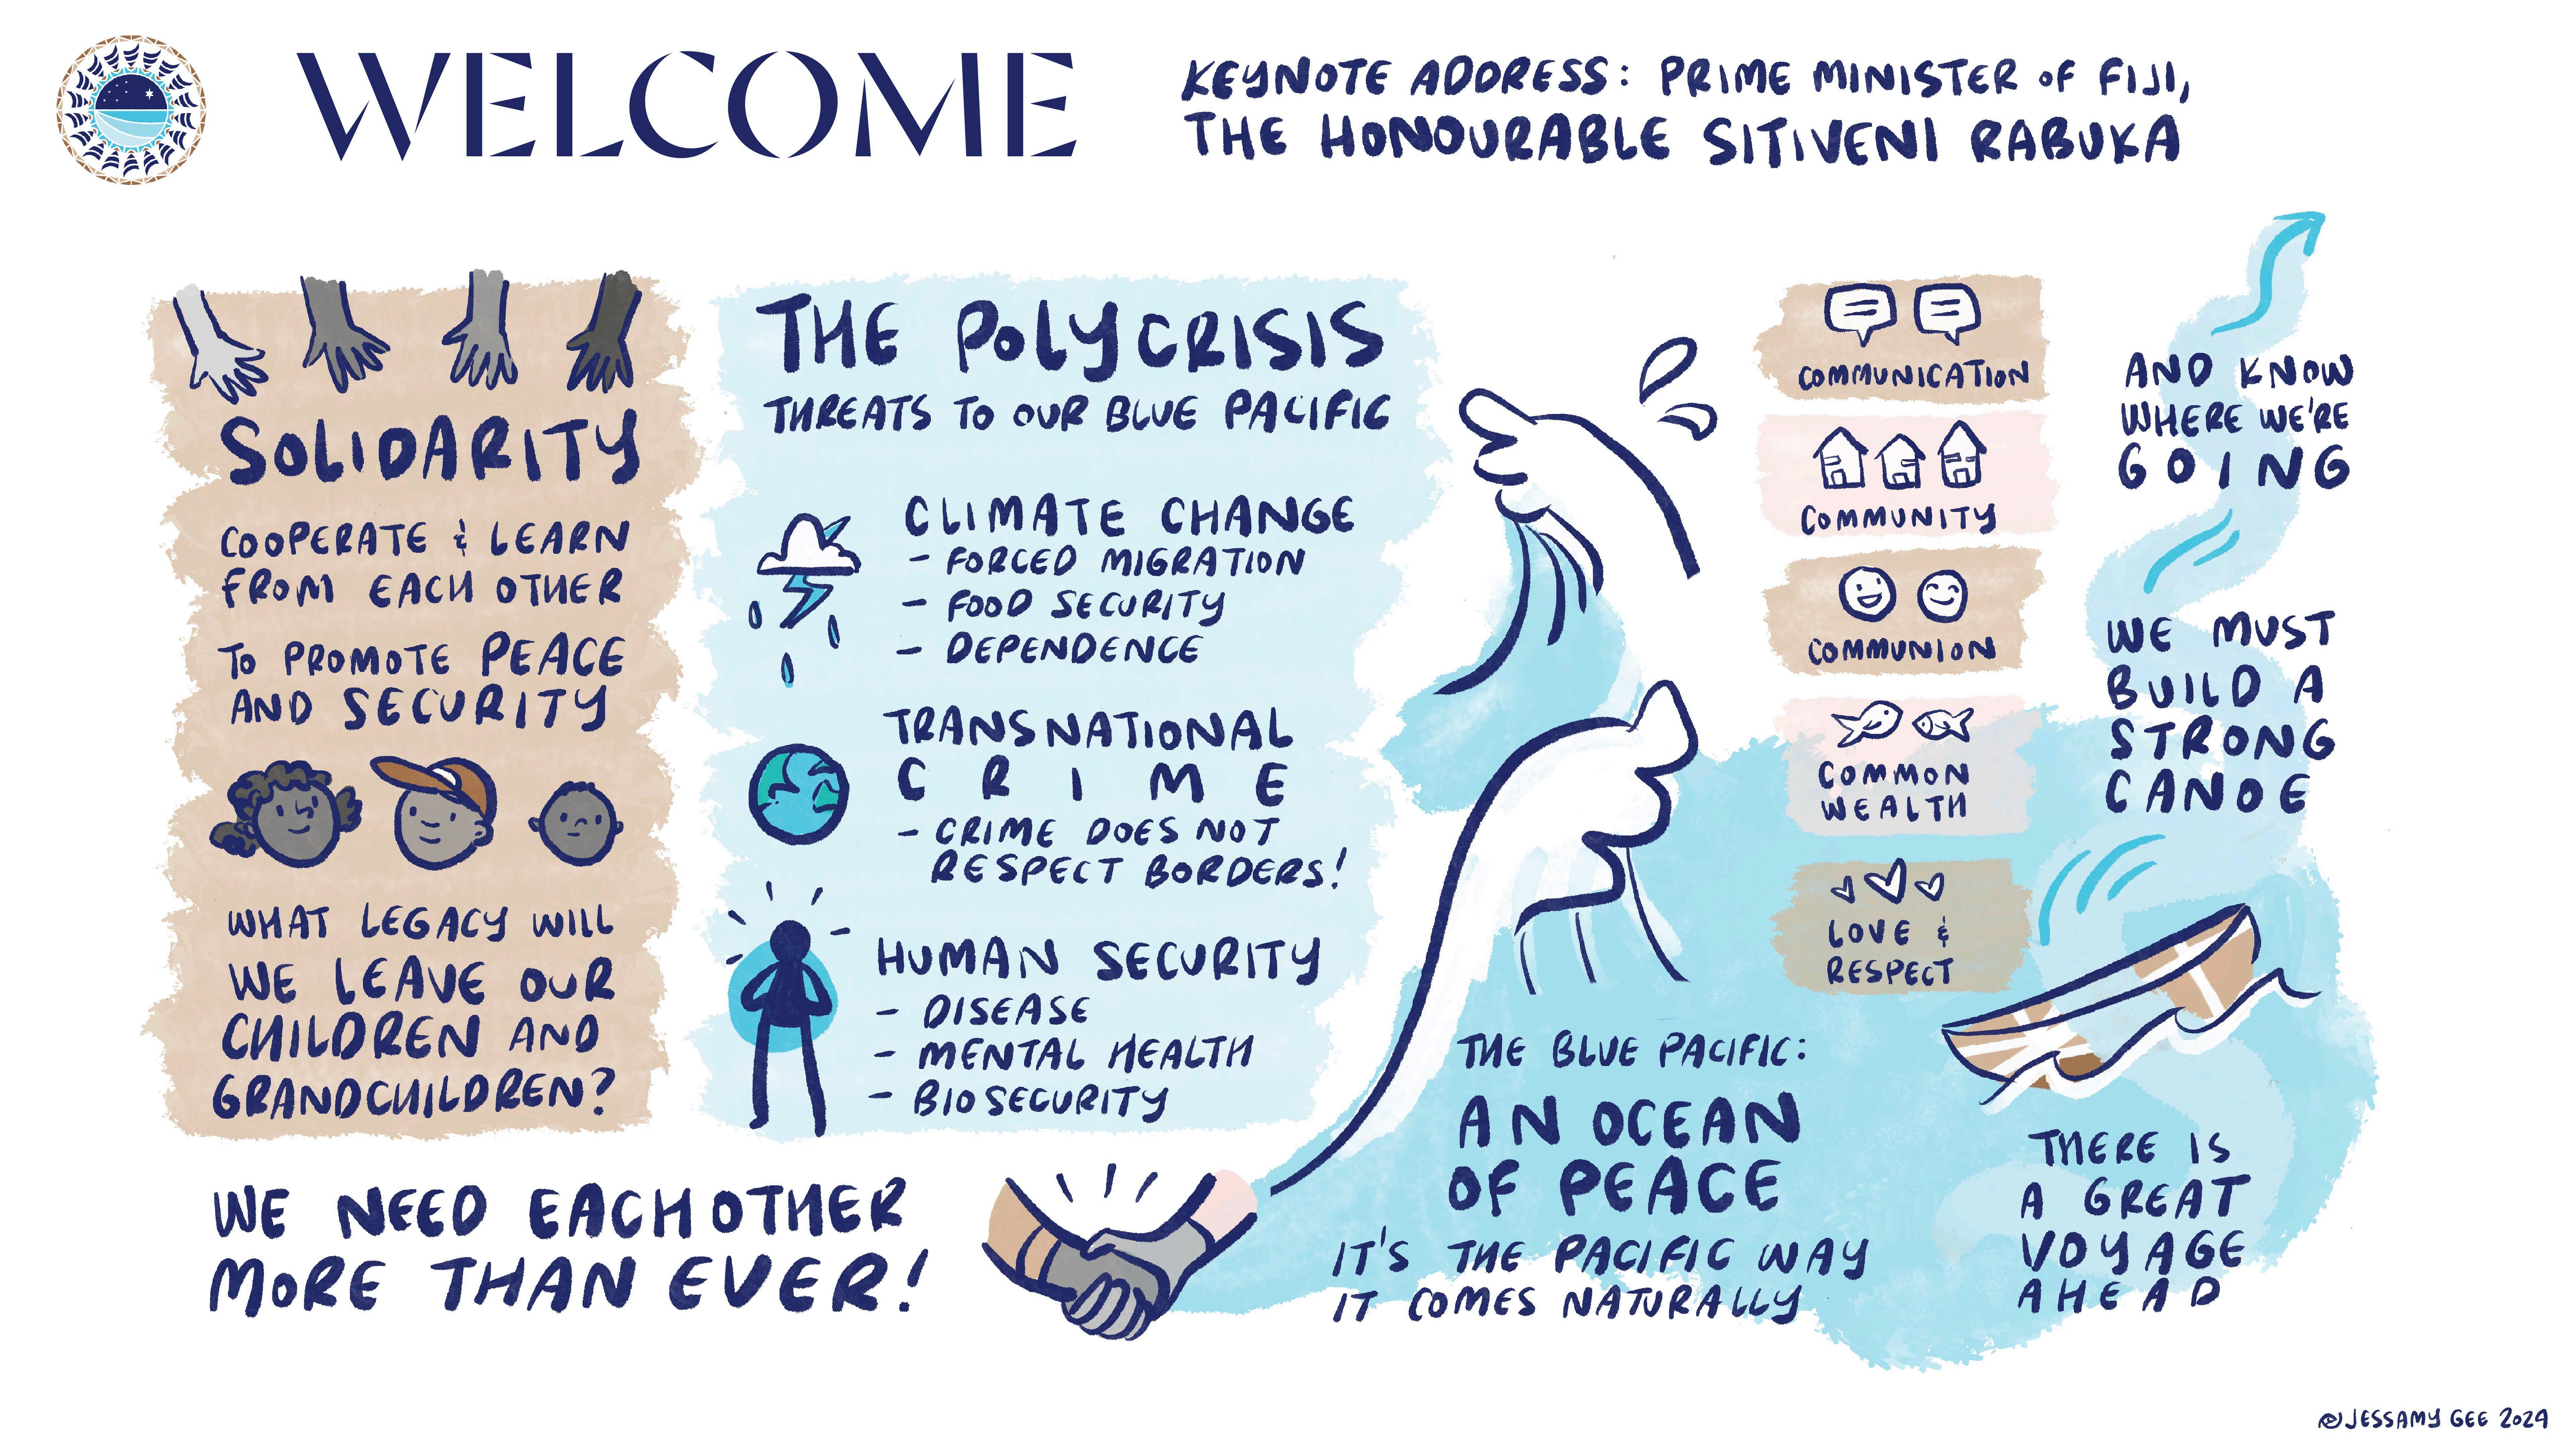 WELCOME
KEYNOTE ADDRESS: PRIME MINISTER OF FIJI,
THE HONOURABLE SITIVENI RABUKA
SOLIDARITY
COOPERATE & LEARN
FROM EACH OTHER
TO PROMOTE PEACE
AND SECURITY
WHAT LEGACY WILL
WE LEAVE OUR
CHILDREN AND
GRANDCHILDREN?
THE POLYCRISIS
THREATS TO OUR BLUE PACIFIC
CLIMATE CHANGE
- FORCED MIGRATION
- FOOD SECURITY
- DEPENDENCE
TRANSNATIONAL
CRIME
- CRIME DOES NOT
RESPECT BORDERS!
HUMAN SECURITY
- DISEASE
- MENTAL HEALTH
- BIOSECURITY
WE NEED EACHOTHER
MORE THAN EVER!
THE BLUE PACIFIC:
AN OCEAN
OF PEACE
IT'S THE PACIFIC WAY
IT COMES NATURALLY
COMMUNICATION
COMMUNITY
COMMUNION
COMMON
WEALTH
LOVE &
RESPECT
AND KNOW
WHERE WE'RE
GOING
WE MUST
BUILD A
STRONG
CANOE
THERE IS
A GREAT
VOYAGE
AHEAD
© JESSAMY GEE 2024